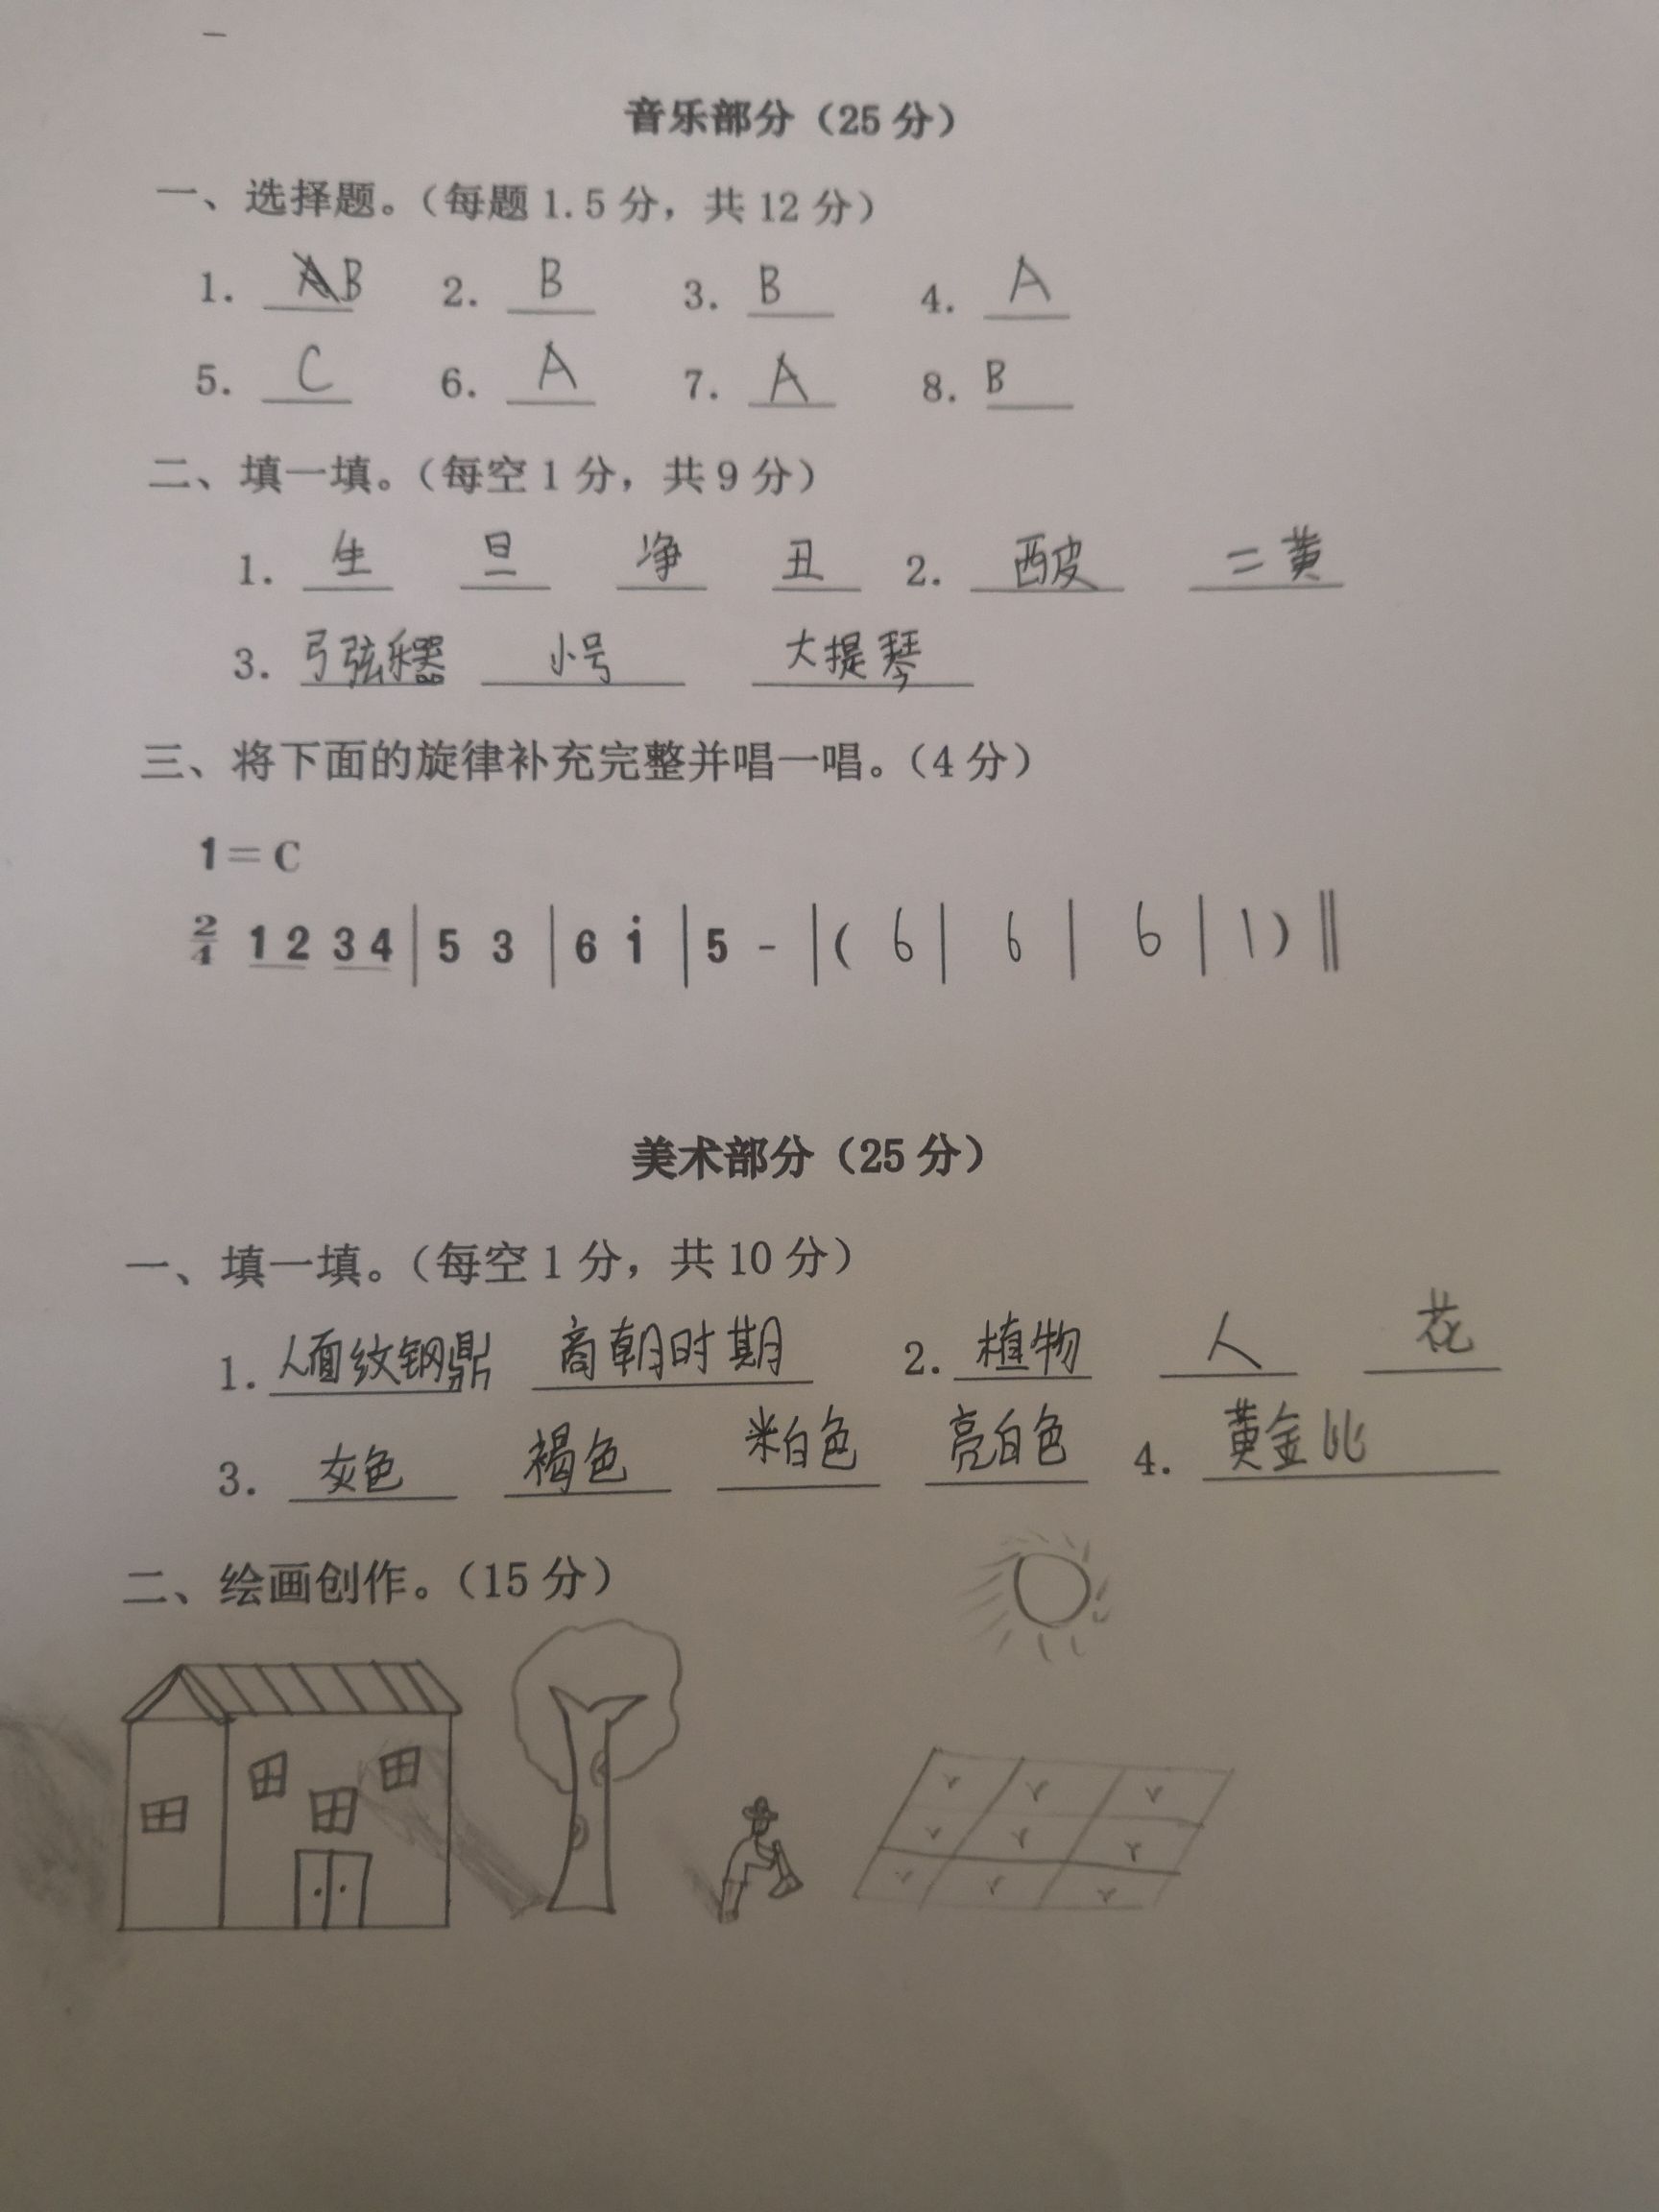 音乐部分（25分）
一、选择题。（每题1.5分，共12分）
1. B 2. B 3. B 4. A
5. C 6. A 7. A 8. B
二、填一填。（每空1分，共9分）
1. 生 旦 净 丑 2. 西皮 二黄
3. 弓弦乐器 小号 大提琴
三、将下面的旋律补充完整并唱一唱。（4分）
1=C
2/4 1 2 3 4 | 5 3 | 6 i | 5 - |( 6 | 6 | 6 | 1 ) ‖
美术部分（25分）
一、填一填。（每空1分，共10分）
1. 人面纹钢鼎 商朝时期 2. 植物 人 花
3. 灰色 褐色 米白色 亮白色 4. 黄金比
二、绘画创作。（15分）